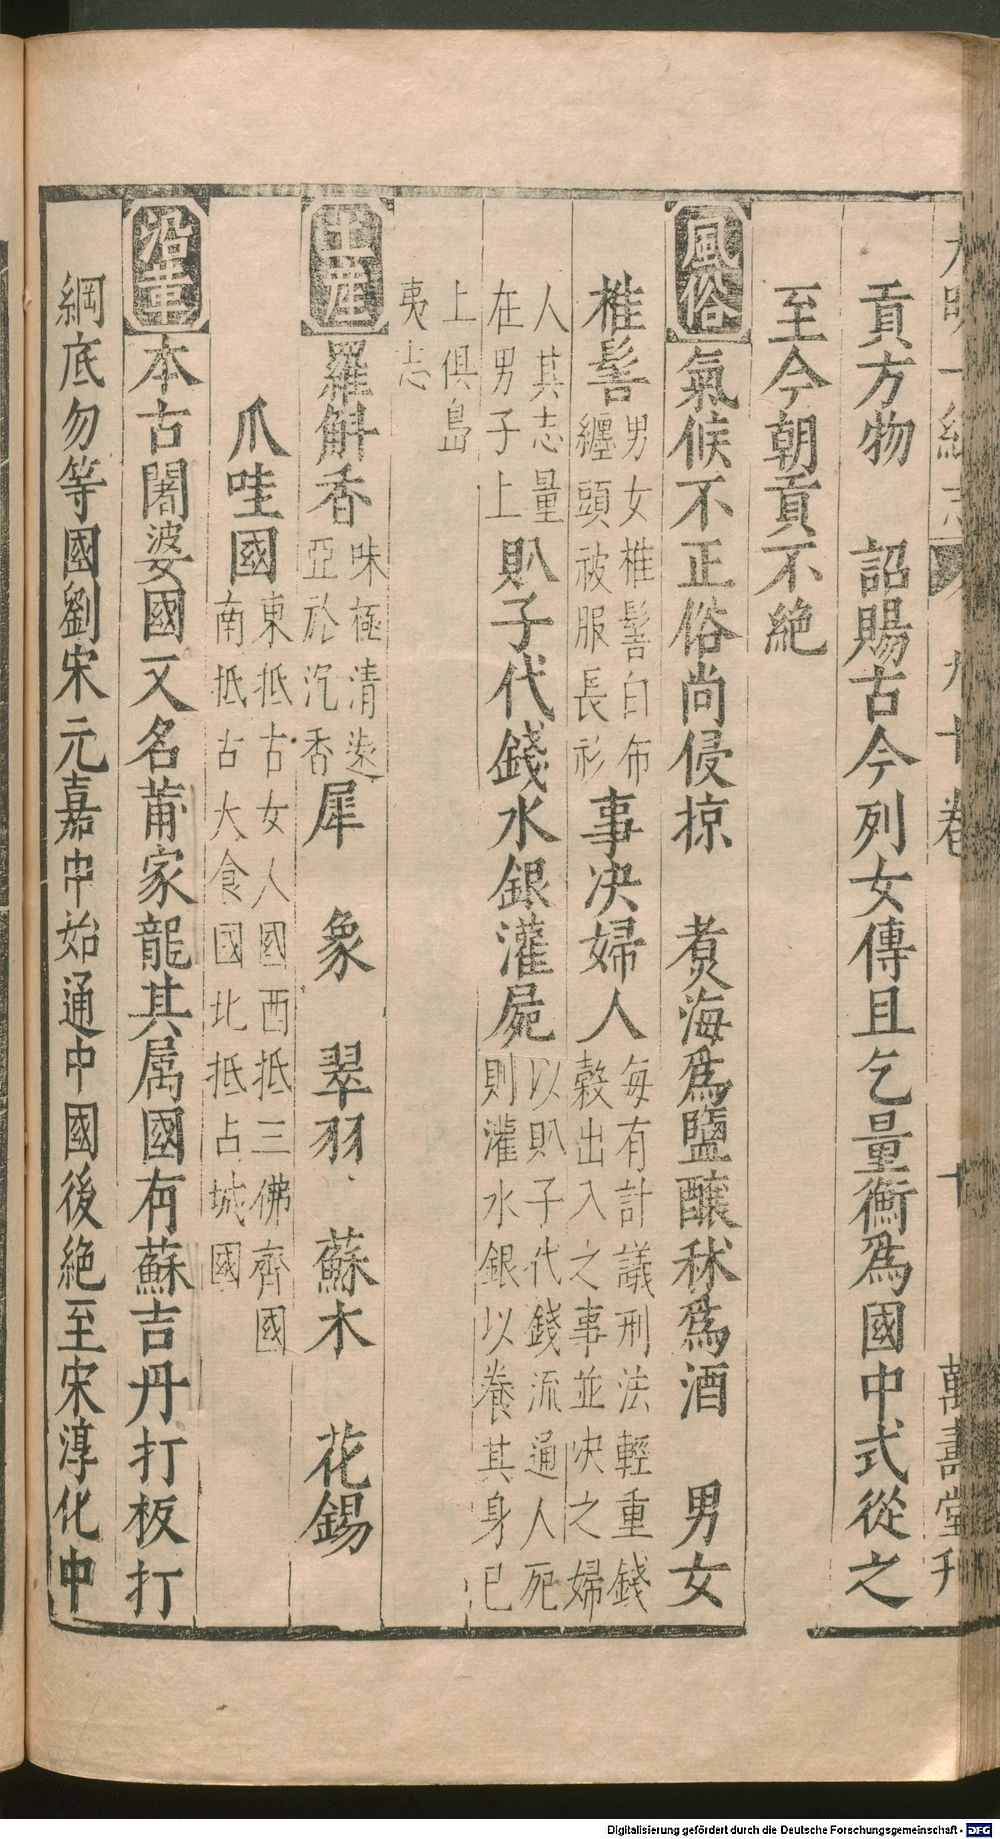 大明一統志 九十卷 十 萬壽堂刊
貢方物 詔賜古今列女傳且乞量衡爲國中式從之
至今朝貢不絶
風俗 氣候不正俗尚侵掠 煑海爲鹽釀秫爲酒 男女
椎髻 男女椎髻白布纏頭被服長衫 事决婦人 每有計議刑法輕重錢穀出入之事並决之婦
人其志量在男子上 㕢子代錢水銀灌屍 以㕢子代錢流通人死則灌水銀以養其身已
上俱島夷志
土産 羅斛香 味極清遠亞於沉香 犀 象 翠羽 蘇木 花錫
爪哇國 東抵古女人國西抵三佛齊國南抵古大食國北抵占城國
沿革 本古闍婆國又名莆家龍其属國有蘇吉丹打板打
綱底勿等國劉宋元嘉中始通中國後絶至宋淳化中
Digitalisierung gefördert durch die Deutsche Forschungsgemeinschaft - DFG